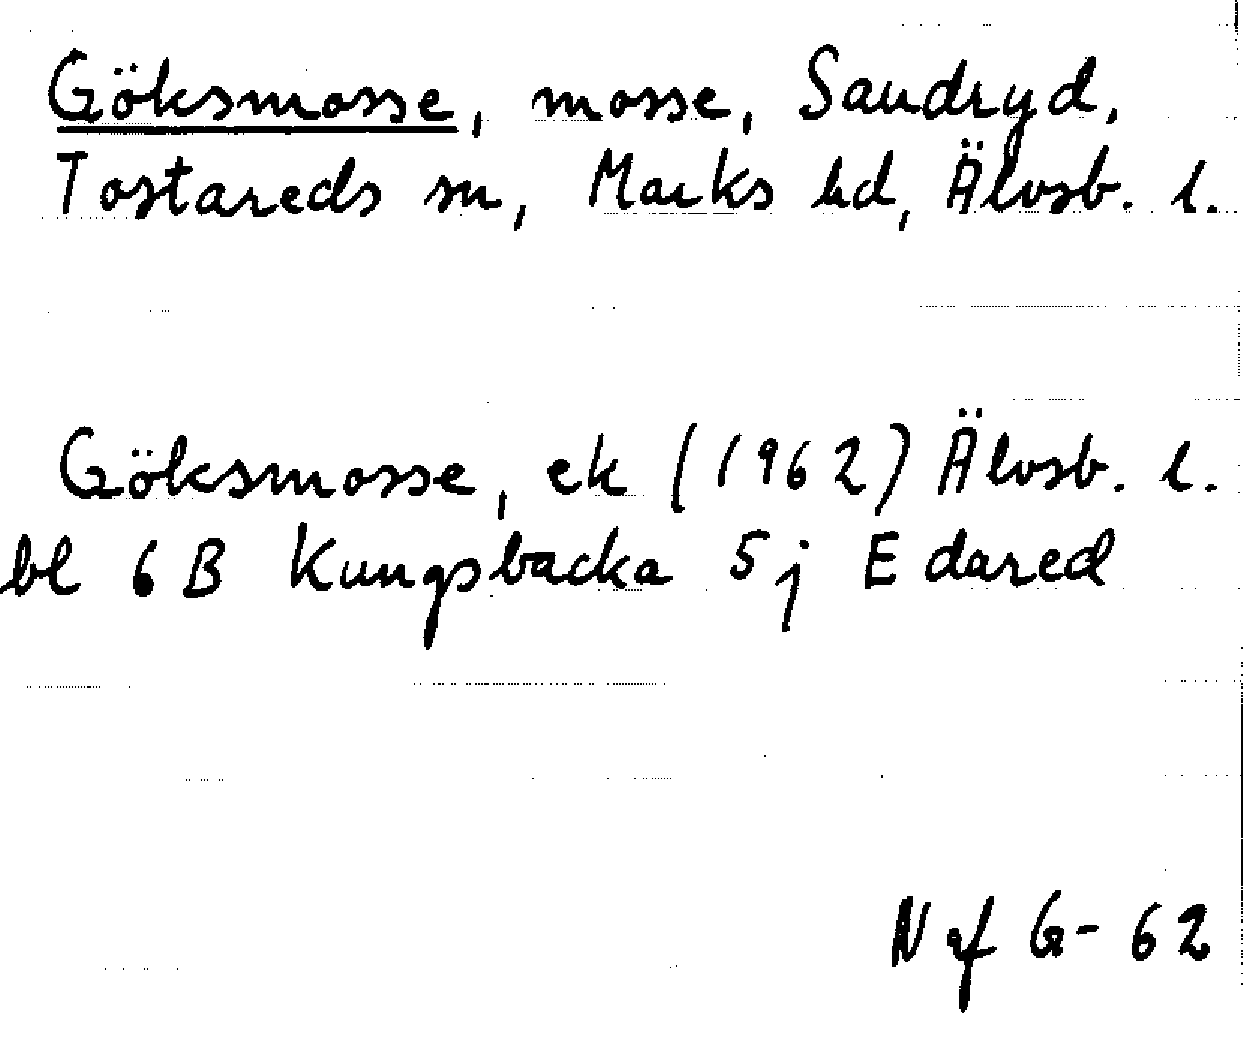 Göksmosse, mosse, Sandryd,
Tostareds sn, Marks hd, Älvsb. l.
Göksmosse, ek (1962) Älvsb. l.
bl 6 B Kungsbacka 5 j E dared
N gf G-62